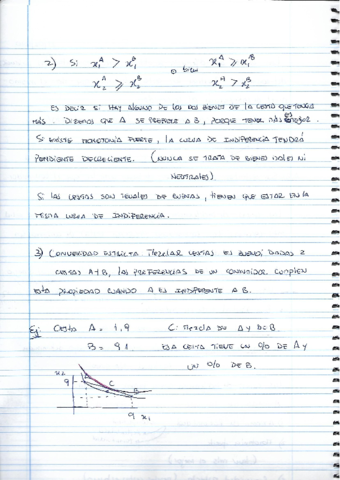 2) Si x₁ᴬ > x₁ᴮ o bien x₁ᴬ ≥ x₁ᴮ
x₂ᴬ ≥ x₂ᴮ x₂ᴬ > x₂ᴮ
Es decir si hay alguno de los dos bienes de la cesta que tenga
más. Diremos que A se prefiere a B, porque tener más es mejor.
Si existe monotonía fuerte, la curva de indiferencia tendrá
pendiente decreciente. (nunca se trata de bienes males ni
neutrales)
Si las cestas son iguales de buenas, tienen que estar en la
misma curva de indiferencia.
3) Convexidad estricta (mezclar cestas es bueno) Dadas 2
cestas A y B, las preferencias de un consumidor cumplen
esta propiedad cuando A es indiferente a B.
Ej: Cesta A = 1,9 C: Mezcla de A y de B.
B = 9,1 Esa cesta tiene un % de A y
un % de B.
x₂
9
A
C
B
9 x₁